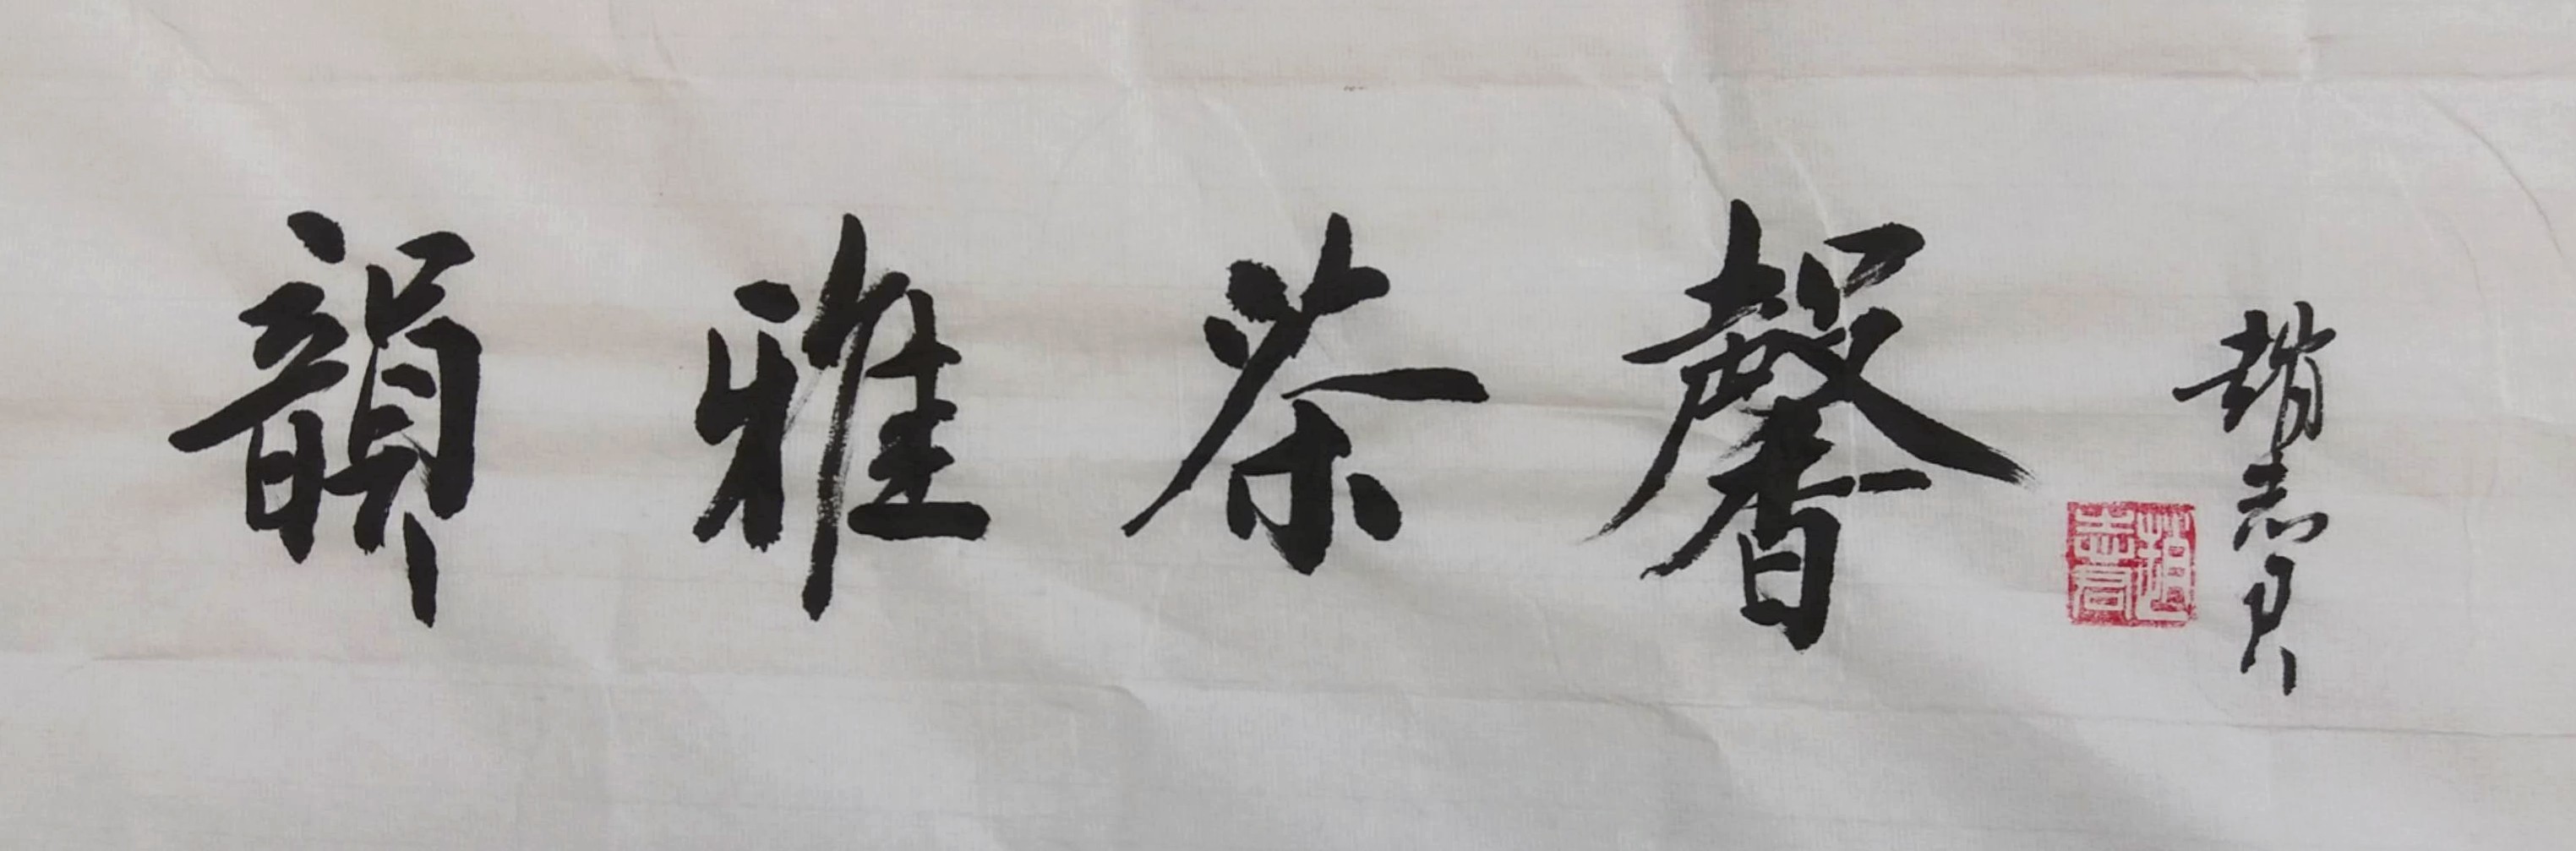 韻雅茶馨
趙志君
趙志君